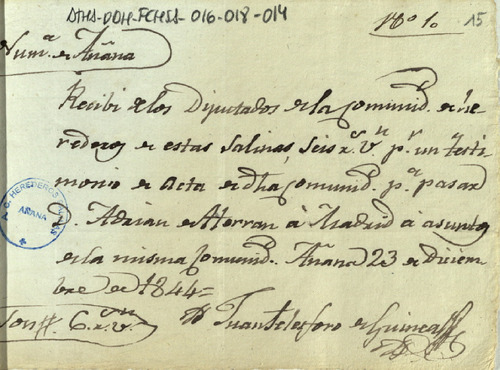 ATHS-DOH-FCHSS-016-018-014
Nº 1º
15
Num.ª de Añana
Recibi de los Diputados de la Comunid. de he-
rederos de estas Salinas, seis r.s v.n p.r un testi
monio de Acta de dha Comunid. p.a pasar
D. Adrian de Herran à Madrid à asuntos
de la misma Comunid. Añana 23 de Diciem
bre de 1844=
Son # 6 r.s v.n
Juan Telesforo de Guinea
HEREDEROS
AÑANA